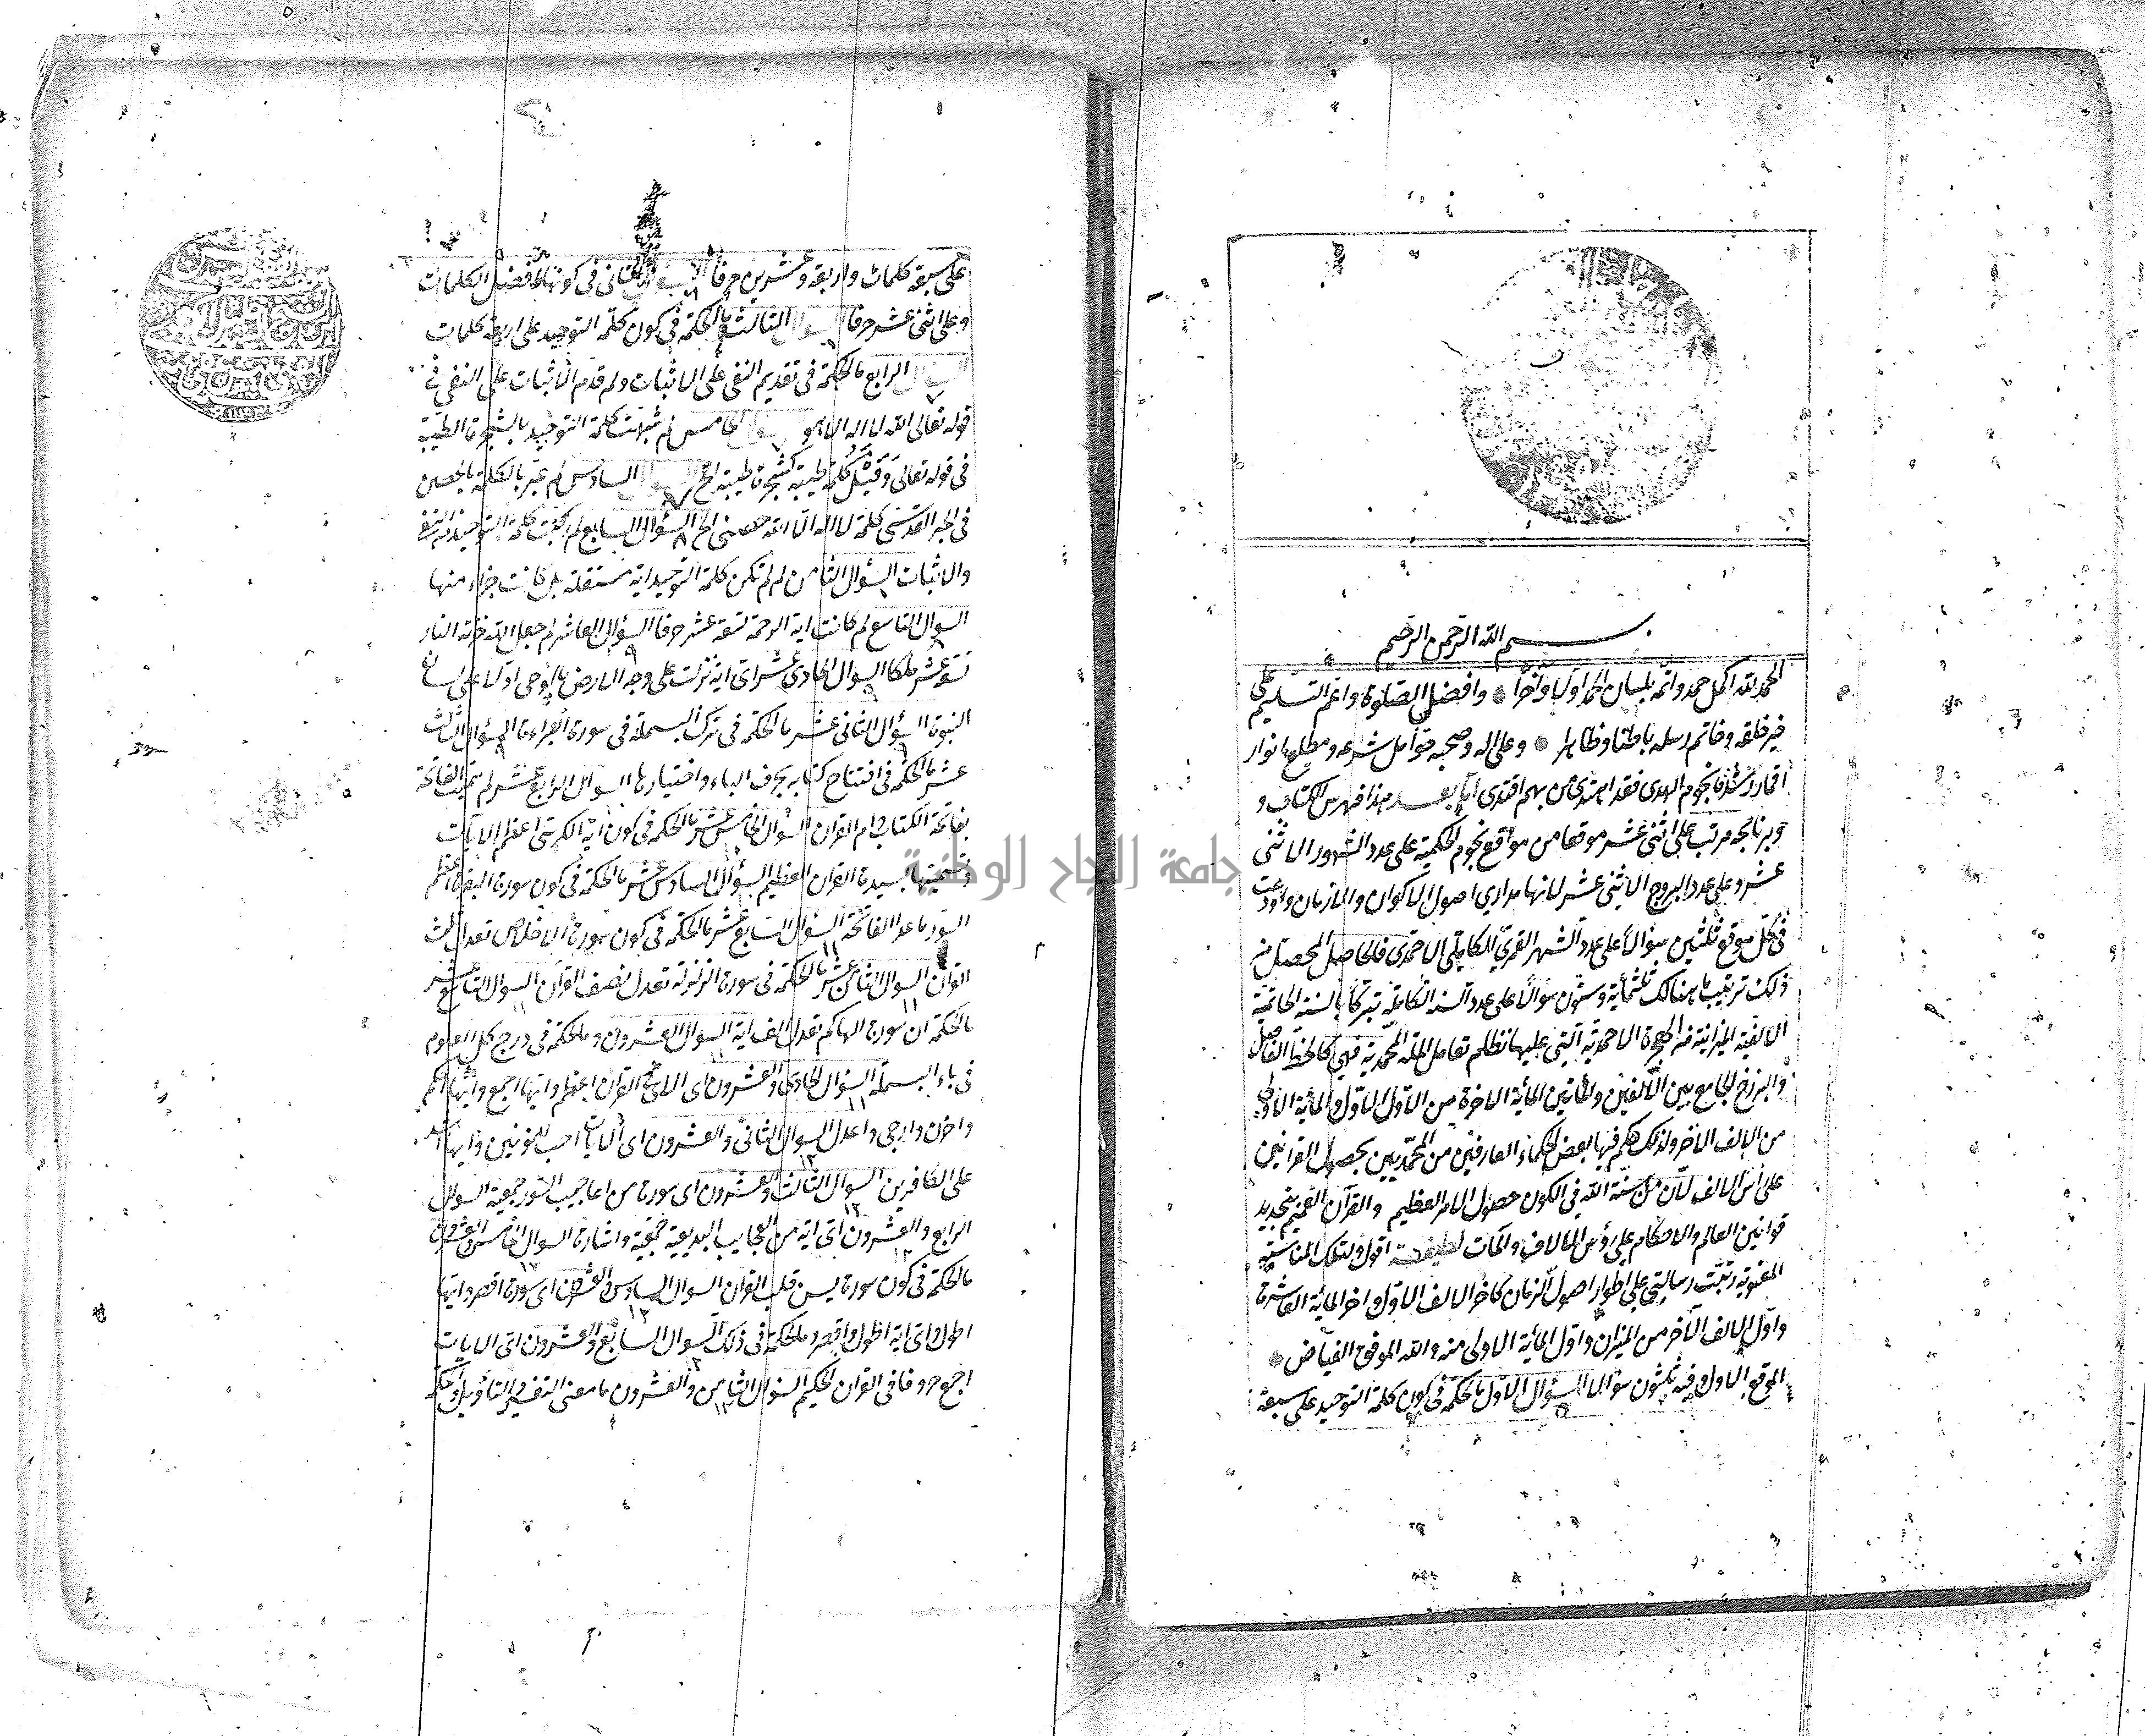 بسم الله الرحمن الرحيم
الحمد لله اكمل حمد واتمه بلسان الحمد اولا وآخرا وافضل الصلوة واعم التسليم على
خير خلقه وخاتم رسله باطنا وظاهرا وعلى اله وصحبه حوامل شرعه ومطلع انوار
اقمار فنجوم الهدى فقد اهتدى من بهم اقتدى اما بعد هذا فهرس الكتاب و
وبرنامجه مرتب على اثنى عشر موقعا من مواقع نجوم الحكمية على عدد الشهور الاثنى
عشر وعلى عدد البروج الاثنى عشر لانها مدارى اصول الاكوان والازمان واودعت
فى كل موقع ثلثين سؤالا على عدد الشهر القمرى الكاملى الاحمدى فالحاصل المحصل من
ذلك ترتيب ما هنالك ثلثمأية وستون سؤالا على عدد السنة الكاملة تبركا بالسنة الخاتمية
الالفية الميزانية من الهجرة الاحمدية التى عليها نظام تعامل الملة المحمدية فهى كالخط الفاصل
والبرزخ الجامع بين الالفين والمأتين المأية الاخرة من الاول الاول والمأية الاولى
من الالف الآخر ولذلك حكم فيها بعض الحكماء العارفين من المحمديين بحصول القرانين
على رأس الالف لان من سنة الله فى الكون حصول الامر العظيم والقرآن الفخيم بتجديد
قوانين العالم والاحكام على رؤس الالاف والمآت لطيفة اقول ولتلك المناسبة
المعنوية رتبت رسالتى على اطوار اصول الزمان كآخر الالف الاول واخر المأية العاشرة
واول الالف الآخر من الميزان واول المأية الاولى منه والله الموفق الفياض
الموقع الاول وفيه ثلثون سؤالا السؤال الاول ما الحكمة فى كون كلمة التوحيد على سبعة
على سبعة كلمات واربعة وعشرين حرفا الثانى فى كونها افضل الكلمات
وعلى اثنى عشر حرفا السؤال الثالث ما الحكمة فى كون كلمة التوحيد على اربعة كلمات
السؤال الرابع ما الحكمة فى تقديم النفى على الاثبات ولم قدم الاثبات على النفى فى
قوله تعالى الله لا اله الا هو السؤال الخامس لم شبهت كلمة التوحيد بالشجرة الطيبة
فى قوله تعالى كلمة طيبة كشجرة طيبة الخ السؤال السادس لم عبر بالكلمة بالحصن
فى الخبر القدسى كلمة لا اله الا الله حصنى الخ السؤال السابع لم كلمة التوحيد
والاثبات السؤال الثامن لم لم تكن كلمة التوحيد اية مستقلة بل كانت جزء منها
السؤال التاسع لم كانت اية الرحمة تسعة عشر حرفا السؤال العاشر لم جعل الله خزنة النار
تسعة عشر ملكا السؤال الحادى عشر اى اية نزلت على وجه الارض بالوحى اولا على لسان
النبوة السؤال الثانى عشر ما الحكمة فى ترك البسملة فى سورة البراءة السؤال الثالث
عشر ما الحكمة فى افتتاح كتابه بحرف الباء واختيارها السؤال الرابع عشر لم سميت الفاتحة
بفاتحة الكتاب وام القران السؤال الخامس عشر ما الحكمة فى كون اية الكرسى اعظم الايات
وتسميتها بسيدة القران العظيم السؤال السادس عشر ما الحكمة فى كون سورة البقرة اعظم
السور ما عدا الفاتحة السؤال السابع عشر ما الحكمة فى كون سورة الاخلاص تعدل ثلث
القرآن السؤال الثامن عشر ما الحكمة فى سورة الزلزلة تعدل نصف القرآن السؤال التاسع عشر
ما الحكمة ان سورة الهاكم تعدل الف اية السؤال العشرون وما الحكمة فى درج كل العلوم
فى باء البسملة السؤال الحادى والعشرون اى الاى فى القران اعظم وايها اجمع وايها احكم
واخوف وارجى واعدل السؤال الثانى والعشرون اى الايات احب للمؤمنين وايها اشد
على الكافرين السؤال الثالث والعشرون اى سورة من اعاجيب السور جمعية السؤال
الرابع والعشرون اى اية من العجايب البديعية جمعية واشارة السؤال الخامس والعشرون
ما الحكمة فى كون سورة يس قلب القران السؤال السادس والعشرون اى سورة اقصر وايها
اطول واى اية اطول واقصر وما الحكمة فى ذلك السؤال السابع والعشرون اى الايات
اجمع حروفا فى القران الحكيم السؤال الثامن والعشرون ما معنى التفسير والتأويل والحكمة
جامعة النجاح الوطنية